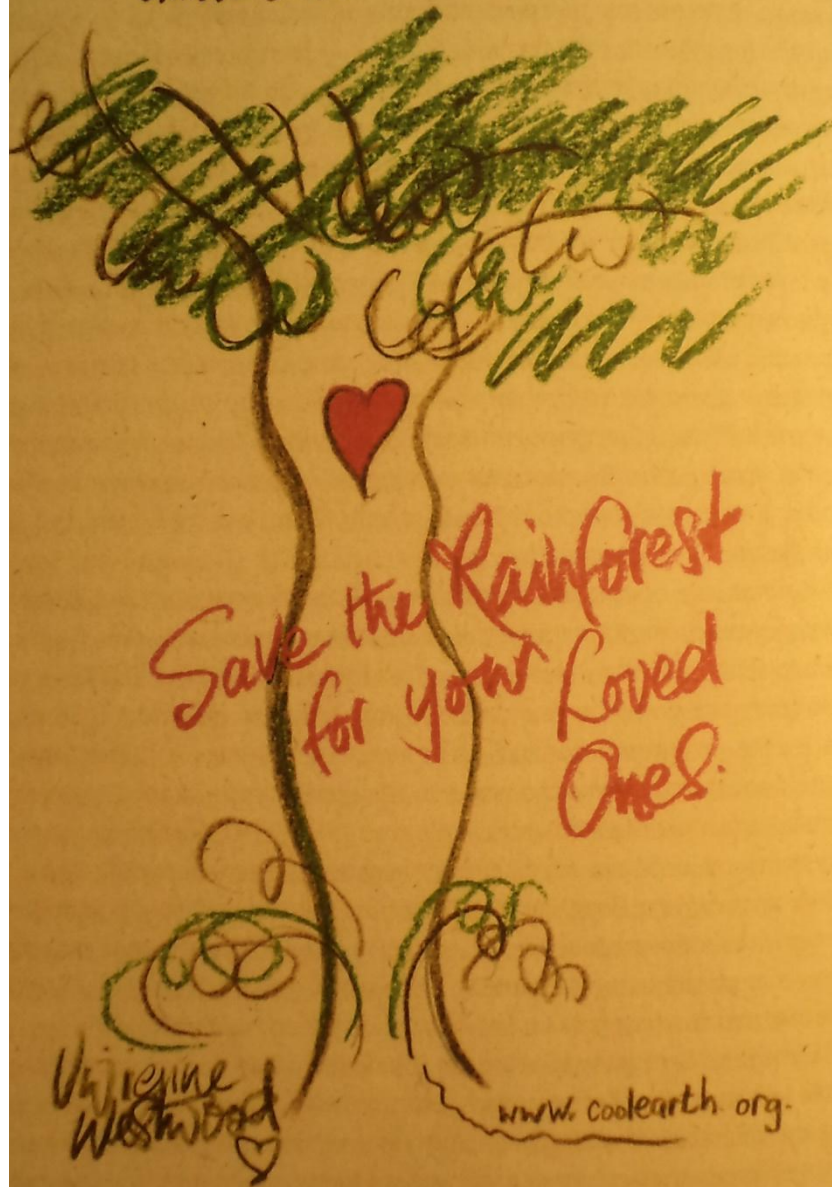 Save the Rainforest
for your Loved
Ones.
Vivienne
Westwood
www.coolearth.org.